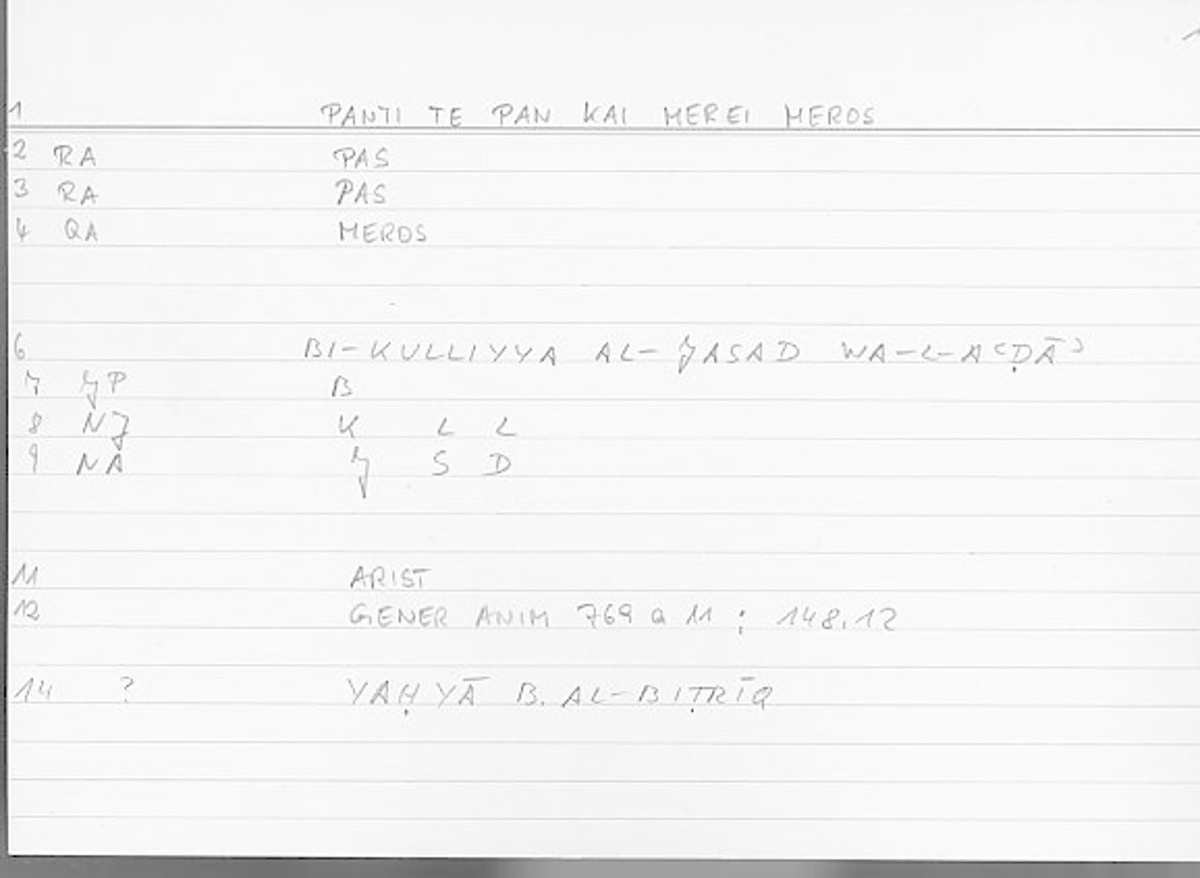 1 PANTI TE PAN KAI MEREI MEROS
2 RA PAS
3 RA PAS
4 QA MEROS
6 BI-KULLIYYA AL-JASAD WA-L-AʿḌĀʾ
7 JP B
8 NJ K L L
9 NA J S D
11 ARIST
12 GENER ANIM 769 a 11 ; 148.12
14 ? YAḤYĀ B. AL-BIṬRĪQ